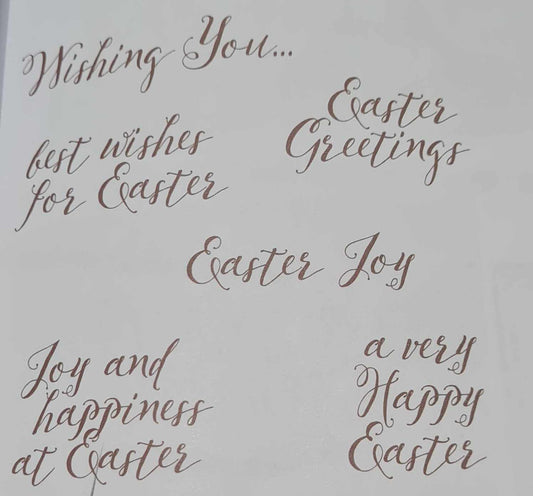 Wishing You...
Easter
Greetings
best wishes
for Easter
Easter Joy
Joy and
happiness
at Easter
a very
Happy
Easter